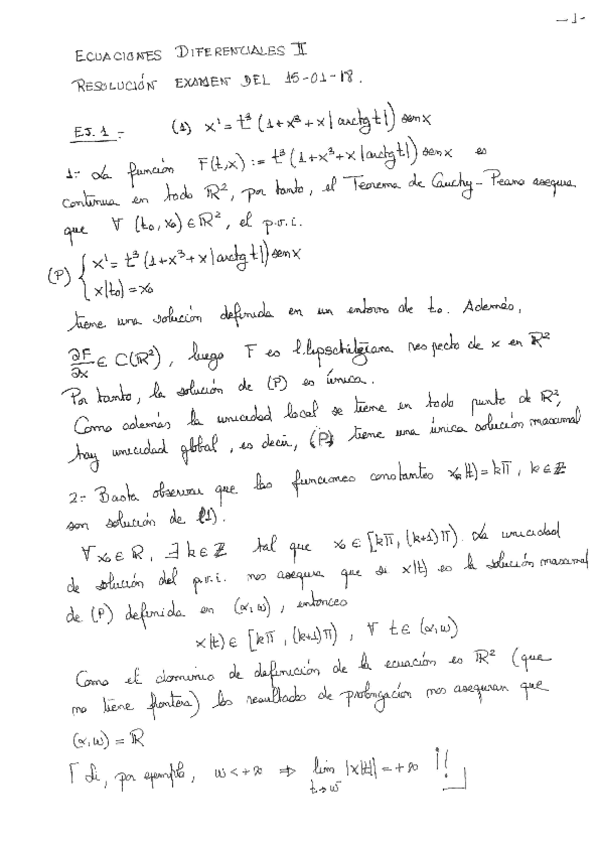 -1-
ECUACIONES DIFERENCIALES II
RESOLUCIÓN EXAMEN DEL 15-01-18.
EJ. 1.- (1) x' = t³ (1+x³+x|arctg t|) sen x
1.- La función F(t,x) := t³ (1+x³+x|arctg t|) sen x es
continua en todo ℝ², por tanto, el Teorema de Cauchy-Peano asegura
que ∀ (t₀,x₀) ∈ ℝ², el p.v.i.
(P) { x' = t³ (1+x³+x|arctg t|) sen x
x(t₀) = x₀
tiene una solución definida en un entorno de t₀. Además,
∂F/∂x ∈ C(ℝ²), luego F es l.lipschitziana respecto de x en ℝ²
Por tanto, la solución de (P) es única.
Como además la unicidad local se tiene en todo punto de ℝ²,
hay unicidad global, es decir, (P) tiene una única solución maximal
2.- Basta observar que las funciones constantes xₖ(t) = kπ, k ∈ ℤ
son solución de (1).
∀ x₀ ∈ ℝ, ∃ k ∈ ℤ tal que x₀ ∈ [kπ, (k+1)π). La unicidad
de solución del p.v.i. nos asegura que si x(t) es la solución maximal
de (P) definida en (α,ω), entonces
x(t) ∈ [kπ, (k+1)π), ∀ t ∈ (α,ω)
Como el dominio de definición de la ecuación es ℝ² (que
no tiene frontera) los resultados de prolongación nos aseguran que
(α,ω) = ℝ
⌈ Si, por ejemplo, ω < +∞ ⇒ lim |x(t)| = +∞ ¡! ⌋
t→ω⁻